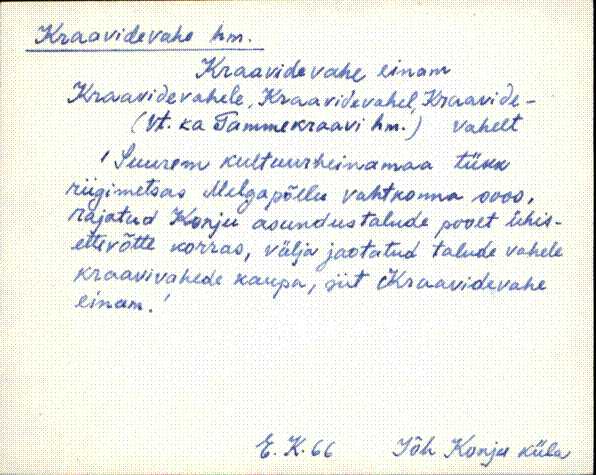 Kraavidevahe hm.
Kraavidevahe einam
Kraavidevahele, Kraavidevahel, Kraavide-
(Vt. ka Tammekraavi hm.) vahelt
'Suurem kultuurheinamaa tükk
riigimetsas Melgapõllu vahtkonna soos,
rajatud Konju asundustalude poolt ühis-
ettevõtte korras, välja jaotatud talude vahele
kraavivahede kaupa, siit Kraavidevahe
einam.'
E. K. 66 Jõh Konju küla